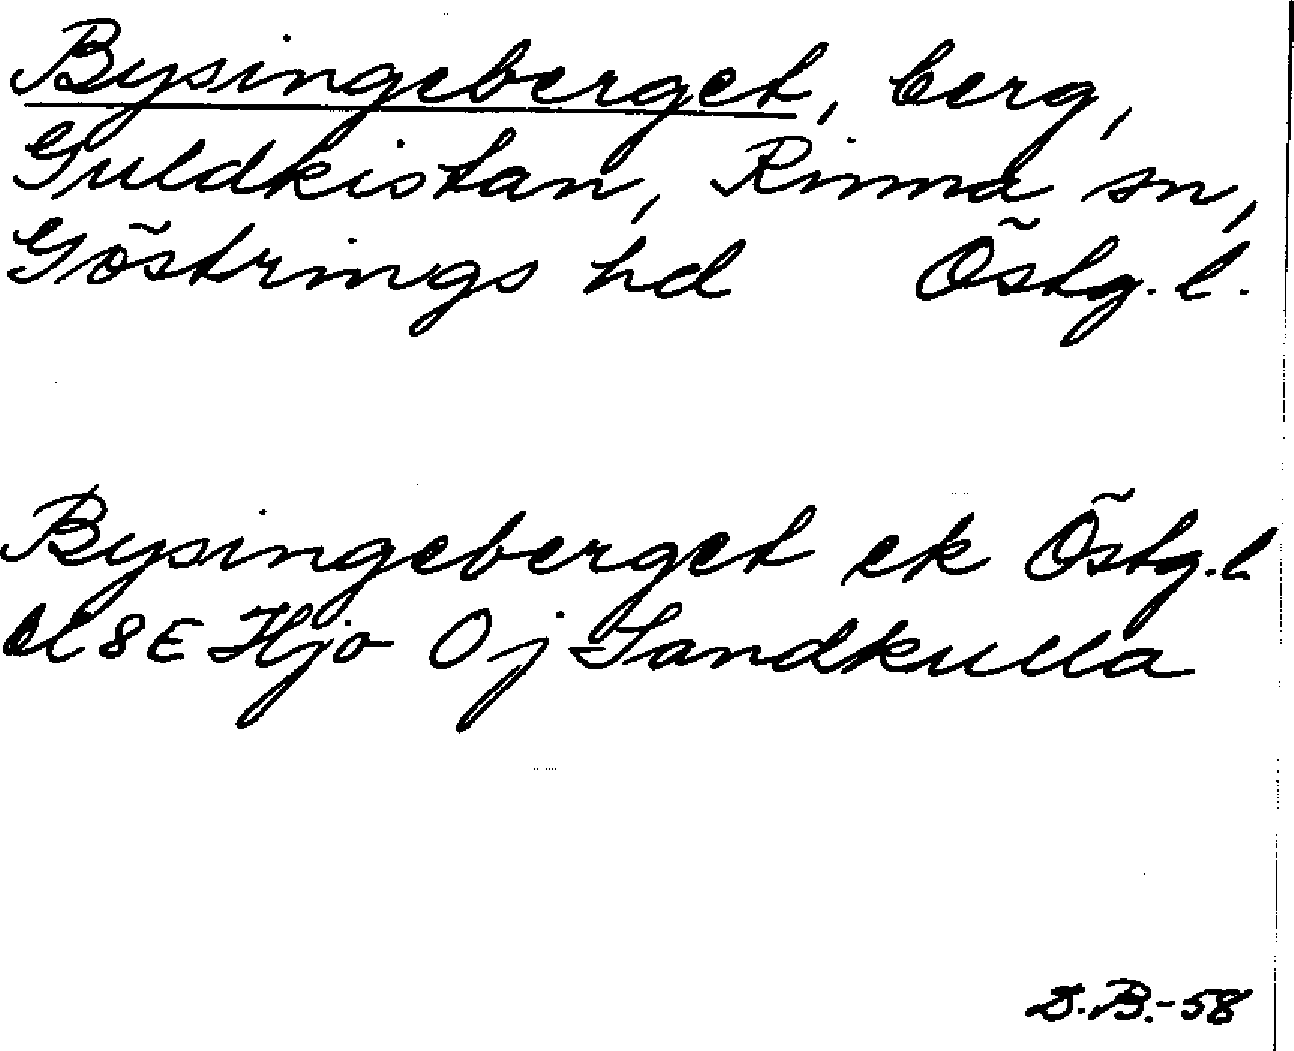 Bysingeberget, berg,
Guldkistan, Rinna sn,
Göstrings hd Östg. l.
Bysingeberget ek Östg. l
bl 8E Hjo Oj Sandkulla
D.B.-58